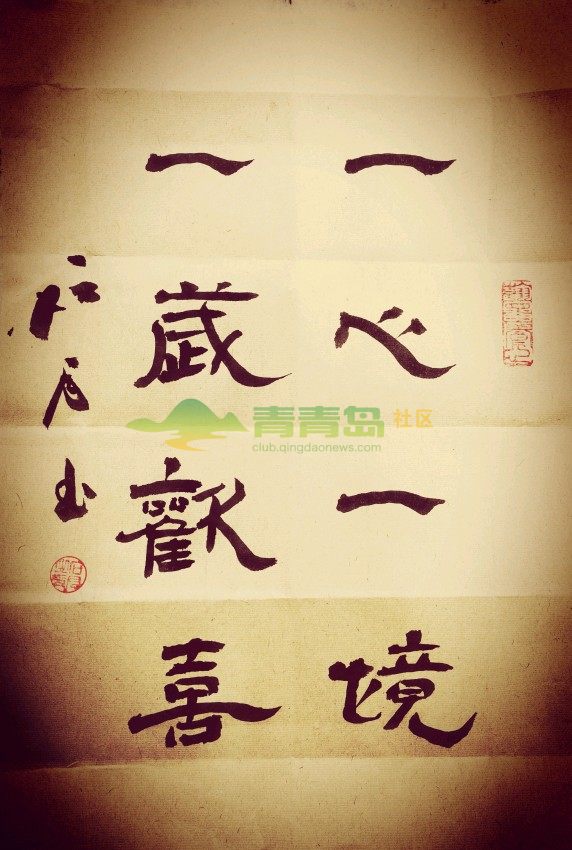 一心一境
一歲歡喜
青青岛 社区
club.qingdaonews.com